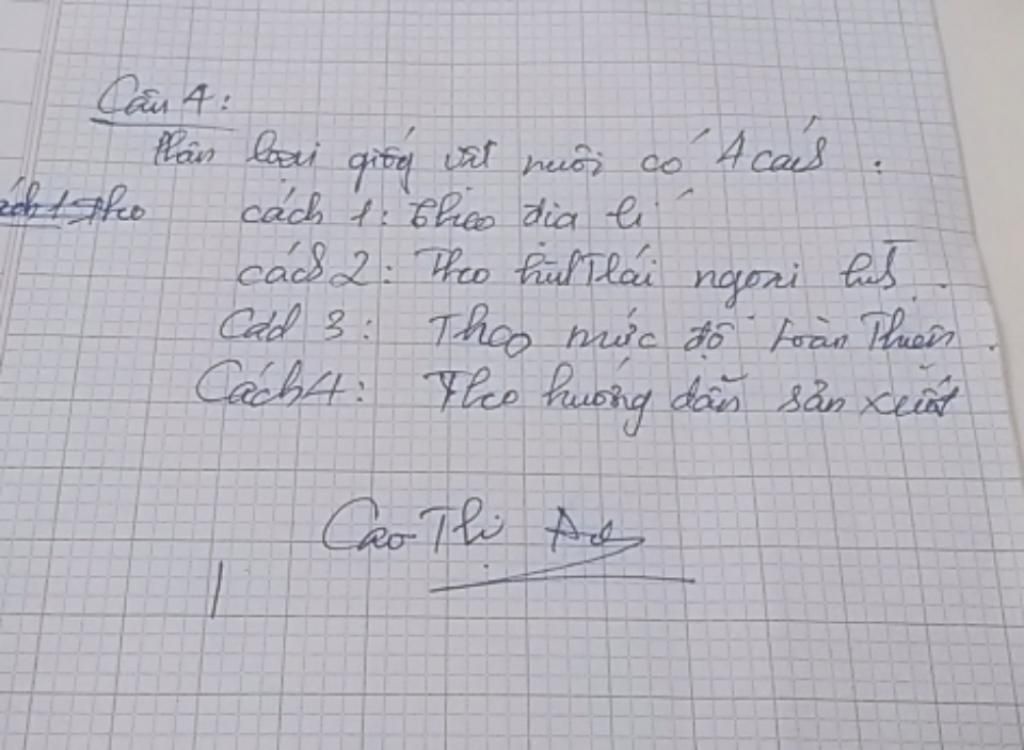 Câu 4:
Phân loại giống vật nuôi có 4 cách :
cách 1: theo địa lí
cách 2: Theo hình thái ngoại hình.
Cách 3: Theo mức độ hoàn thiện.
Cách 4: Theo hướng dẫn sản xuất
Cao Thị